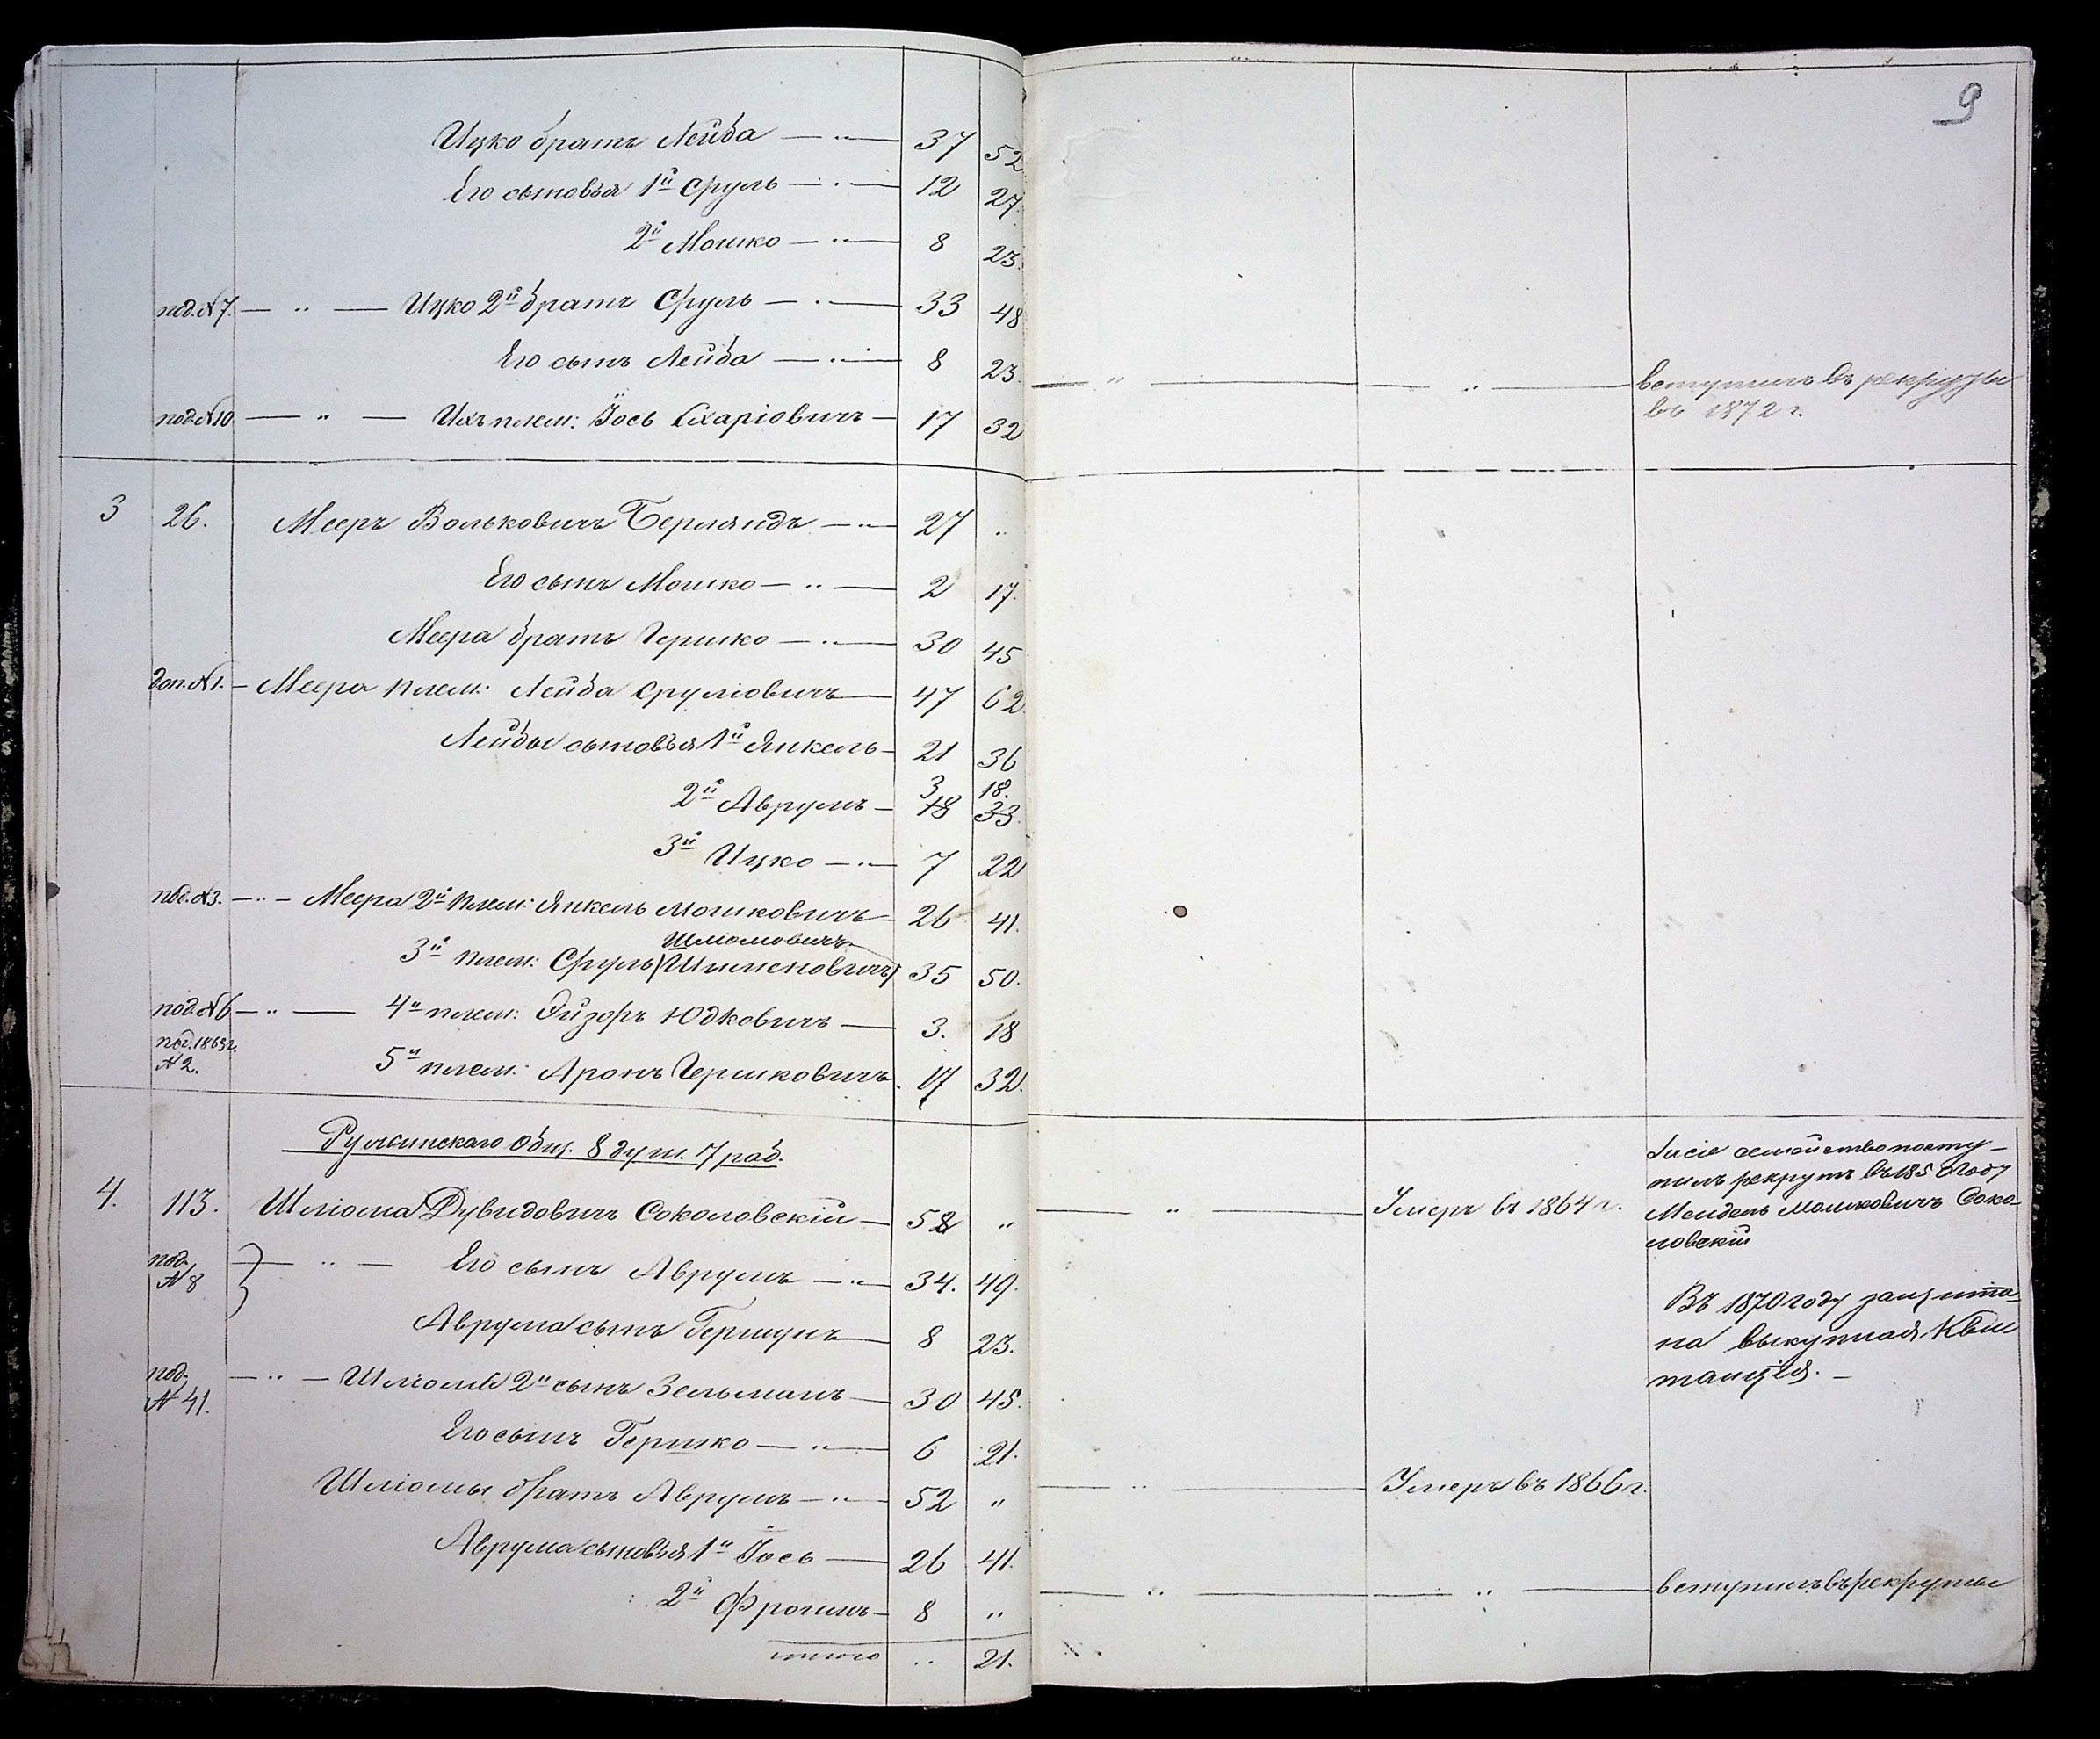 9
Ицко братъ Лейба — „ — 37 52
Его сыновья 1й Сруль — „ — 12 27.
2й Мошко — „ — 8 23.
под. №7. — „ — Ицко 2й братъ Сруль — „ — 33 48
Его сынъ Лейба — „ — 8 23.
— „ — — „ — вступилъ въ рекруты
въ 1872 г.
под. №10 — „ — Ихъ плем: Іось Схаріовичъ — 17 32
3 26. Мееръ Вольковичъ Берляндъ — „ — 27 „
Его сынъ Мошко — „ — 2 17.
Меера братъ Гершко — „ — 30 45
доп. №1. — Меера плем: Лейба Сруліовичъ — 47 62.
Лейбы сыновья 1й Янкель — 21 36
3 18.
2й Аврумъ — 18 33.
3й Ицко — „ — 7 22
под. №3. — „ — Меера 2й плем: Янкель Мошковичъ — 26 41.
Шліомовичъ
3й плем: Сруль (Шименовичъ) 35 50.
под. №6 — „ — 4й плем: Эйзоръ Юдковичъ — 3. 18
под. 1863 г.
№2. 5й плем: Аронъ Гершковичъ. 17 32.
Ружинскаго Общ. 8 душ. 7 раб.
4. 113. Шліома Дувидовичъ Соколовскій — 52 „
— „ — Умеръ въ 1864 г.
семейство посту-
пилъ рекрутъ въ 185 году
Мендель Мошковичъ Соко-
ловскій
под.
№8 — „ — Его сынъ Аврумъ — „ — 34. 49.
Аврума сынъ Гершунъ — 8 23.
Въ 1870 году защита-
на выкупная Кви-
танція. —
под.
№41. — „ — Шліомы 2й сынъ Зельманъ — 30 45.
Его сынъ Гершко — „ — 6 21.
Шліомы братъ Аврумъ — „ — 52 „
— „ — Умеръ въ 1866 г.
Аврума сыновья 1й Іось — 26 41.
2й Фроимъ — 8 „
— „ — — „ — вступилъ въ рекруты
итого „ 21.